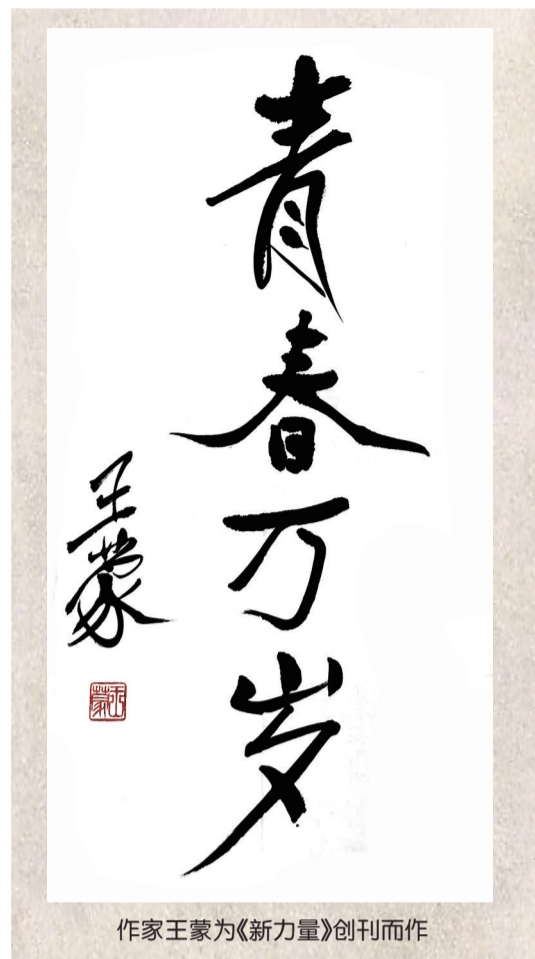 青春万岁
王蒙
王蒙
作家王蒙为《新力量》创刊而作